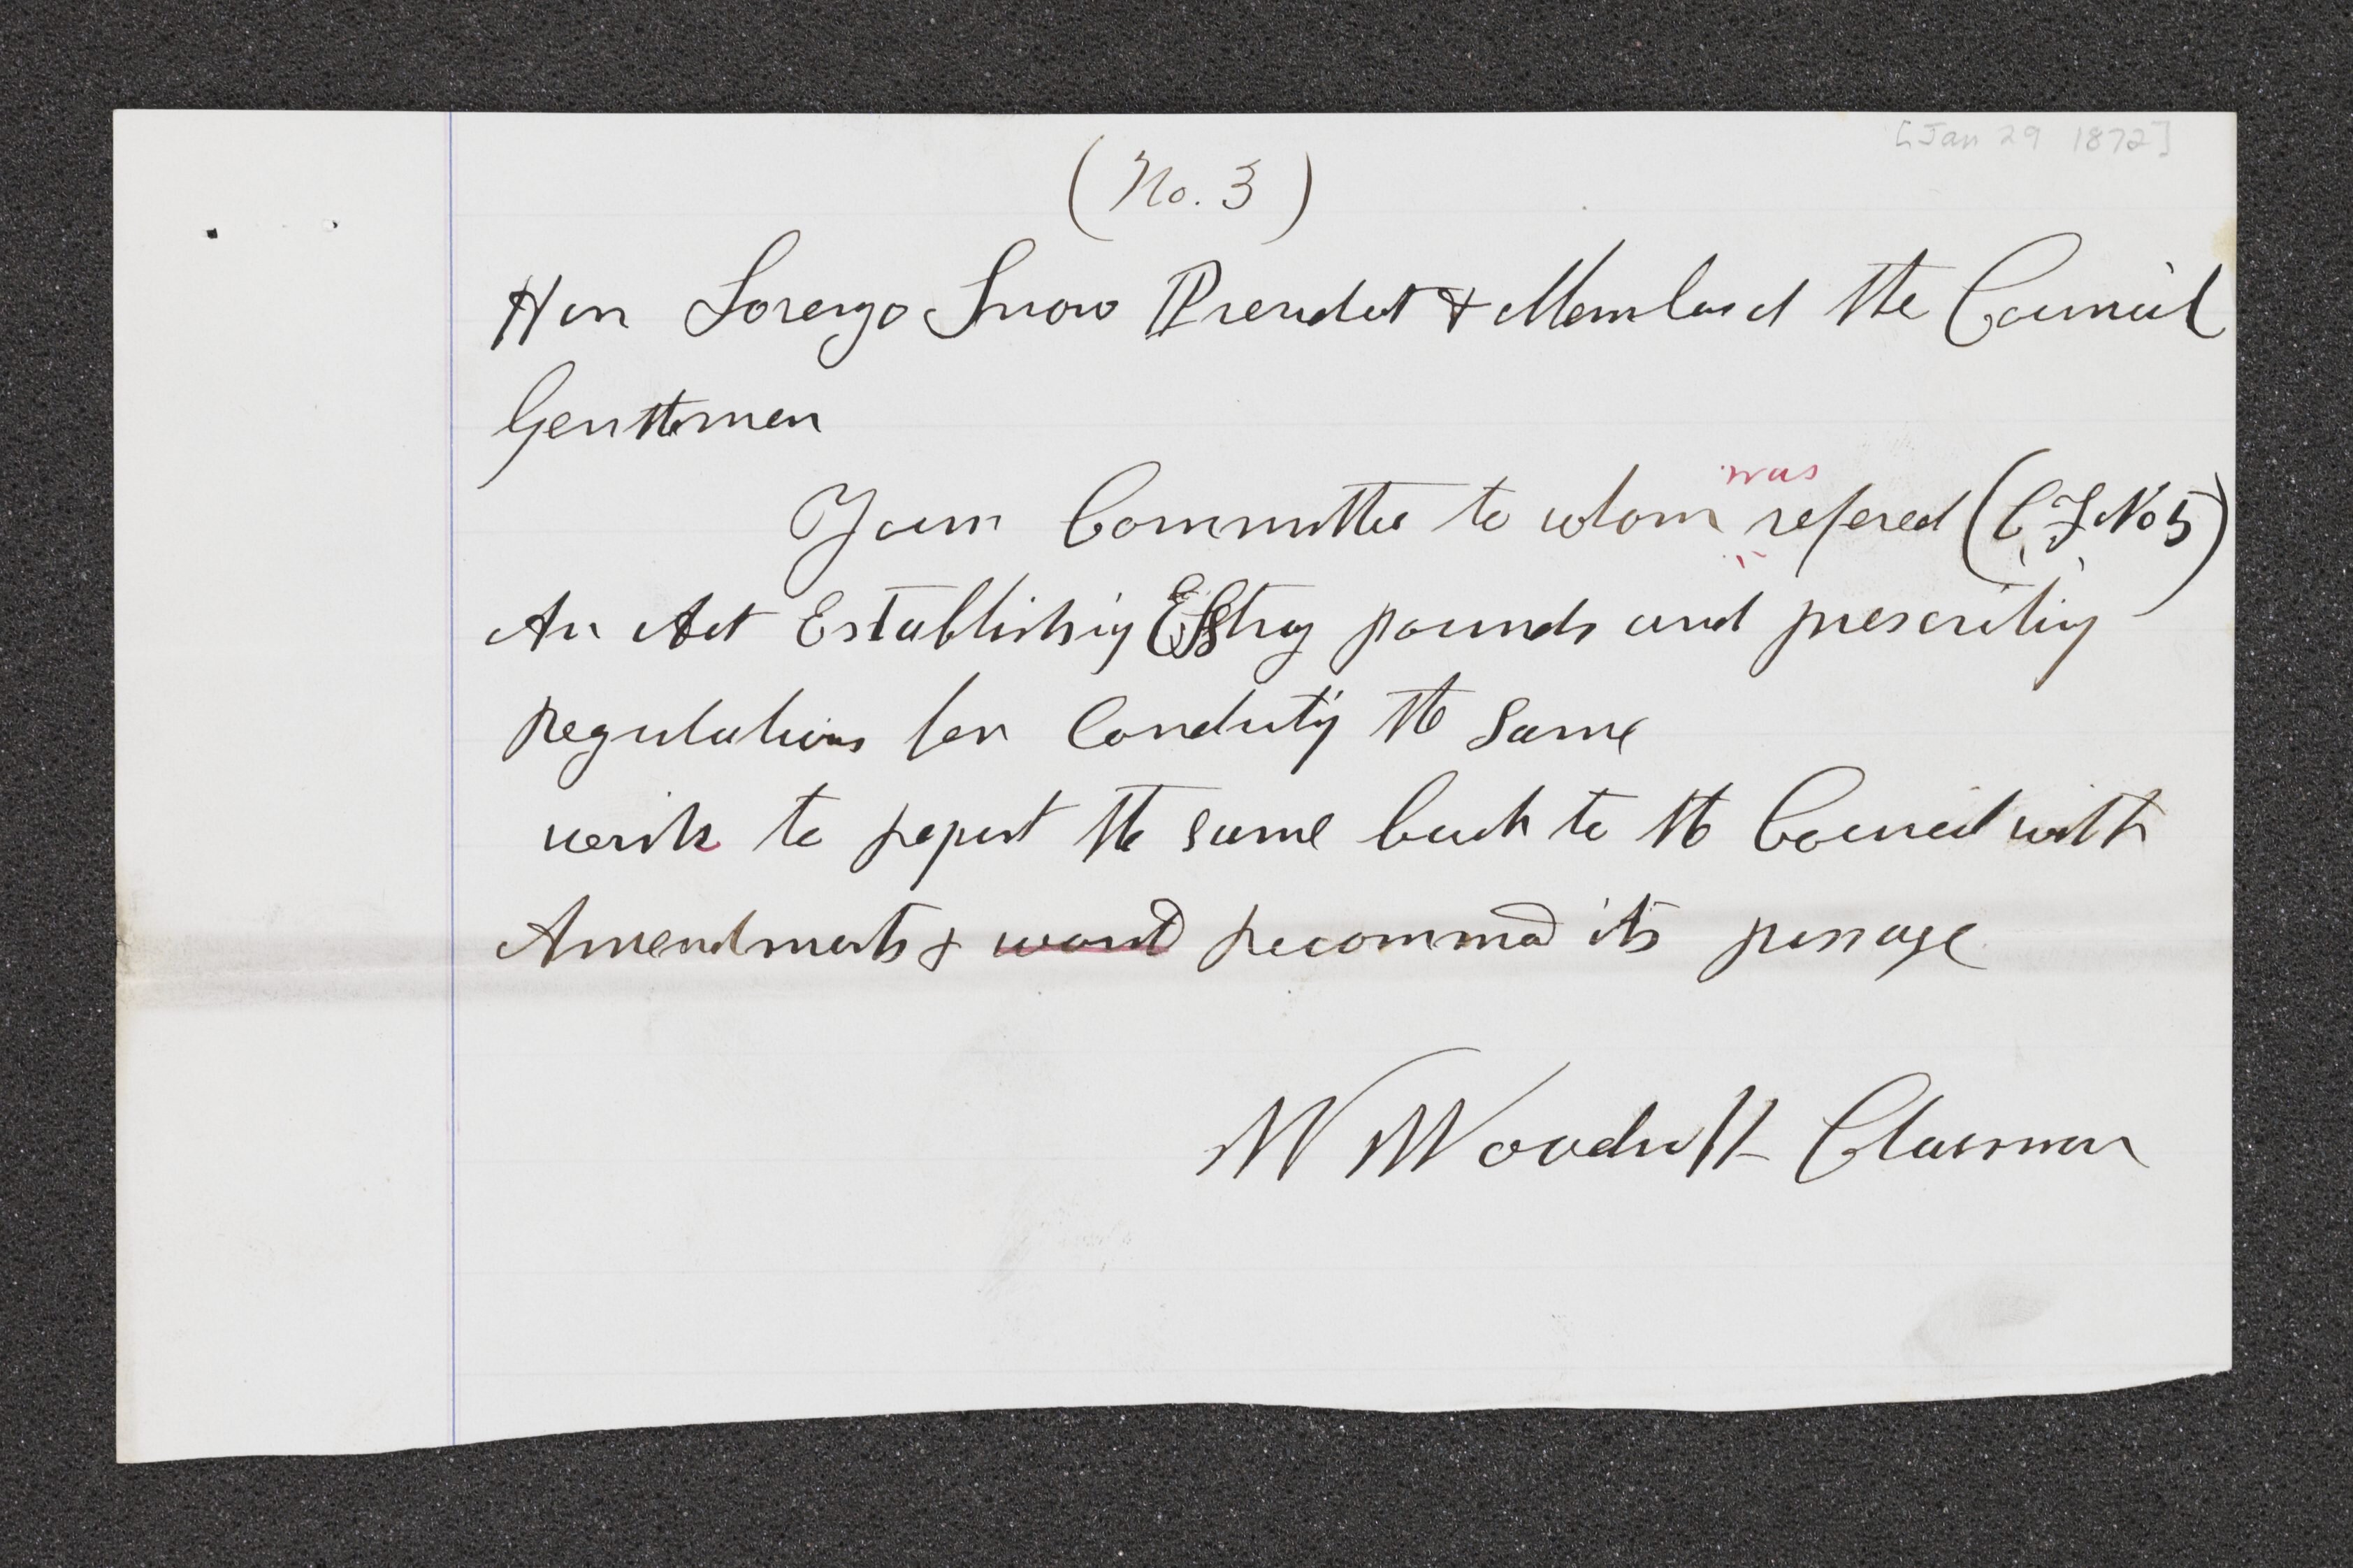 [Jan 29 1872]
(No. 3)
Hon Lorenzo Snow President & Members of the Council
Gentlemen
Your Committee to whom was refered (C. F. No 5)
An Act Establishing Estray pounds and prescribing
regulations for Conducting the Same
wish to report the same back to the Council with
Amendments & would recommend its passage
W Woodruff Chairman